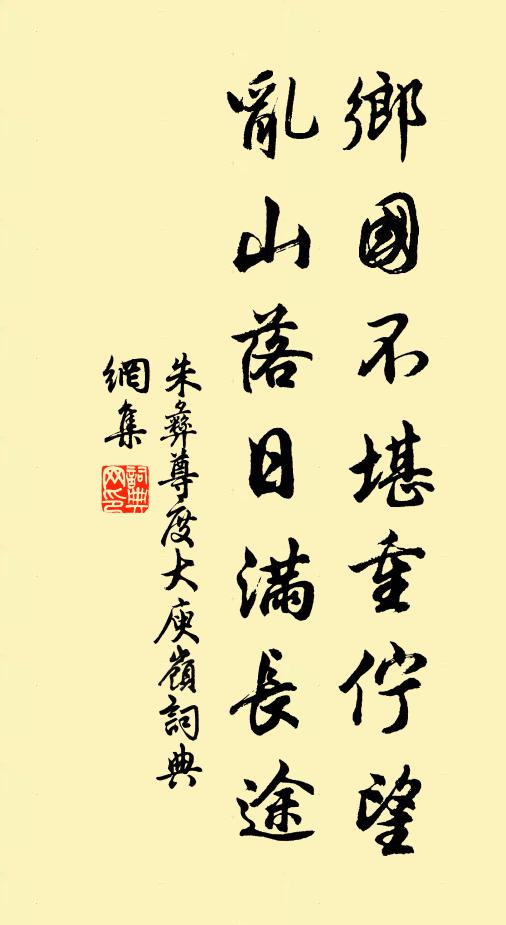 鄉國不堪重佇望
亂山落日滿長途
朱彝尊度大庾嶺詞典
網集
詞典網印